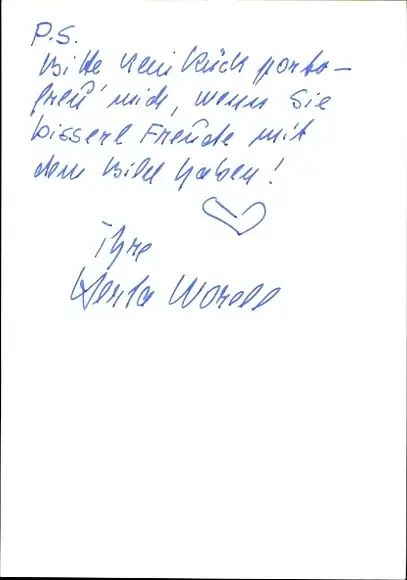 P.S.
Bitte kein Rückporto –
freu' mich, wenn Sie
bisserl Freude mit
dem Bild haben!
Ihre
Herta Worell